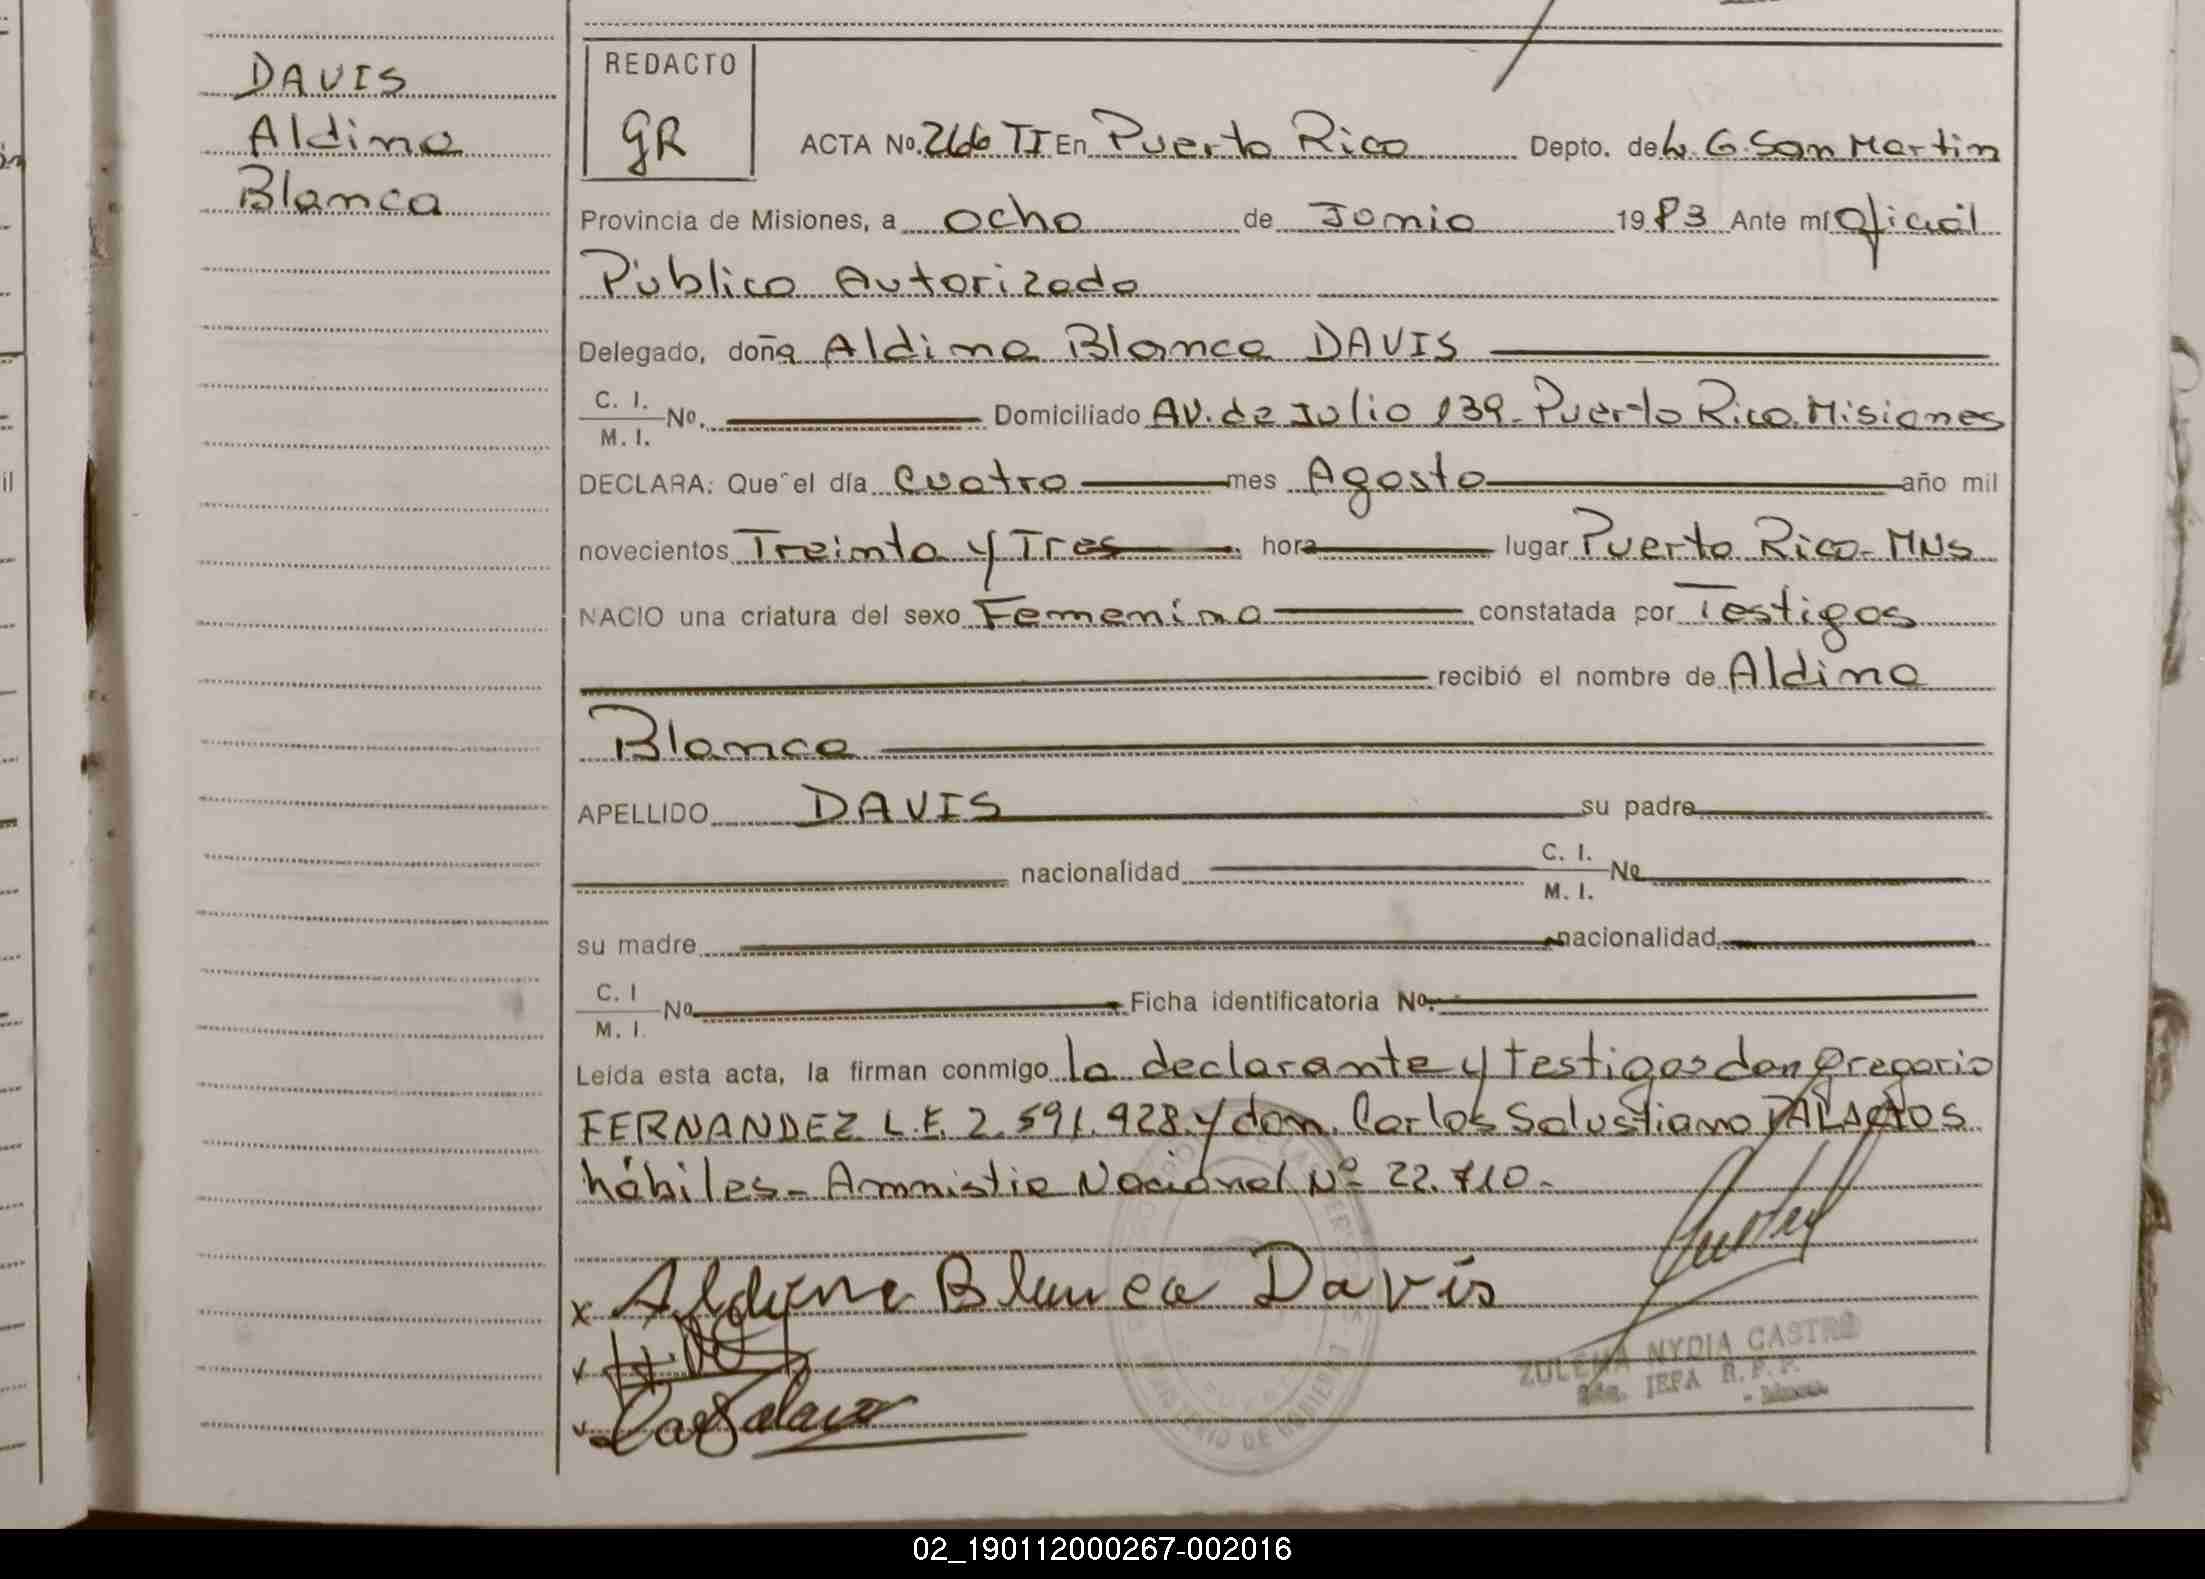 DAVIS
Aldina
Blanca
REDACTO
GR
ACTA No. 266 TI En Puerto Rico Depto. de L. G. San Martin
Provincia de Misiones, a ocho de Junio 1983 Ante mí Oficial
Público Autorizado
Delegado, doña Aldina Blanca DAVIS
C. I.
M. I. No. Domiciliado AV. de Julio 139- Puerto Rico. Misiones
DECLARA: Que el día cuatro mes Agosto año mil
novecientos Treinta y Tres hora lugar Puerto Rico- MNS
NACIO una criatura del sexo Femenino constatada por Testigos
recibió el nombre de Aldina
Blanca
APELLIDO DAVIS su padre
nacionalidad C. I.
M. I. No
su madre nacionalidad
C. I
M. I. No Ficha identificatoria No.
Leída esta acta, la firman conmigo la declarante y testigos don Gregorio
FERNANDEZ L.E. 2.591.928 y don Carlos Salustiano PALACIOS
hábiles- Amnistia Nacional Nº 22.710-
x Aldina Blanca Davis
x
x
ZULEMA NYDIA CASTRO
JEFA R.P.P.
MINISTERIO DE GOBIERNO
02_190112000267-002016